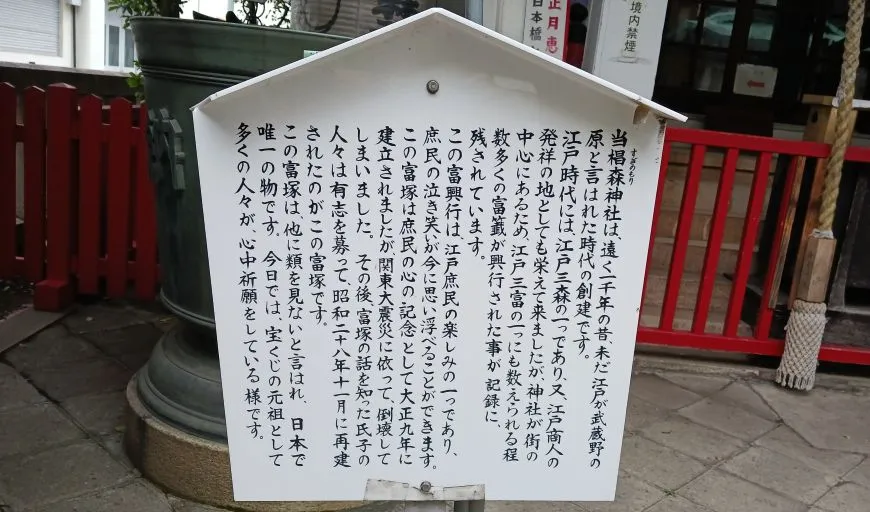 当椙森神社は、遠く一千年の昔、未だ江戸が武蔵野の
すぎのもり
原と言はれた時代の創建です。
江戸時代には、江戸三森の一つであり、又、江戸商人の
発祥の地としても栄えて来ましたが、神社が街の
中心にあるため、江戸三富の一つにも数えられる程
数多くの富籤が興行された事が記録に、
残されています。
この富興行は江戸庶民の楽しみの一つであり、
庶民の泣き笑いが今に思い浮べることができます。
この富塚は庶民の心の記念として大正九年に
建立されましたが関東大震災に依って、倒壊して
しまいました。その後、富塚の話を知った氏子の
人々は有志を募って、昭和二十八年十一月に再建
されたのがこの富塚です。
この富塚は、他に類を見ないと言はれ、日本で
唯一の物です。今日では、宝くじの元祖として
多くの人々が、心中祈願をしている様です。
正月恵
日本橋
境内禁煙